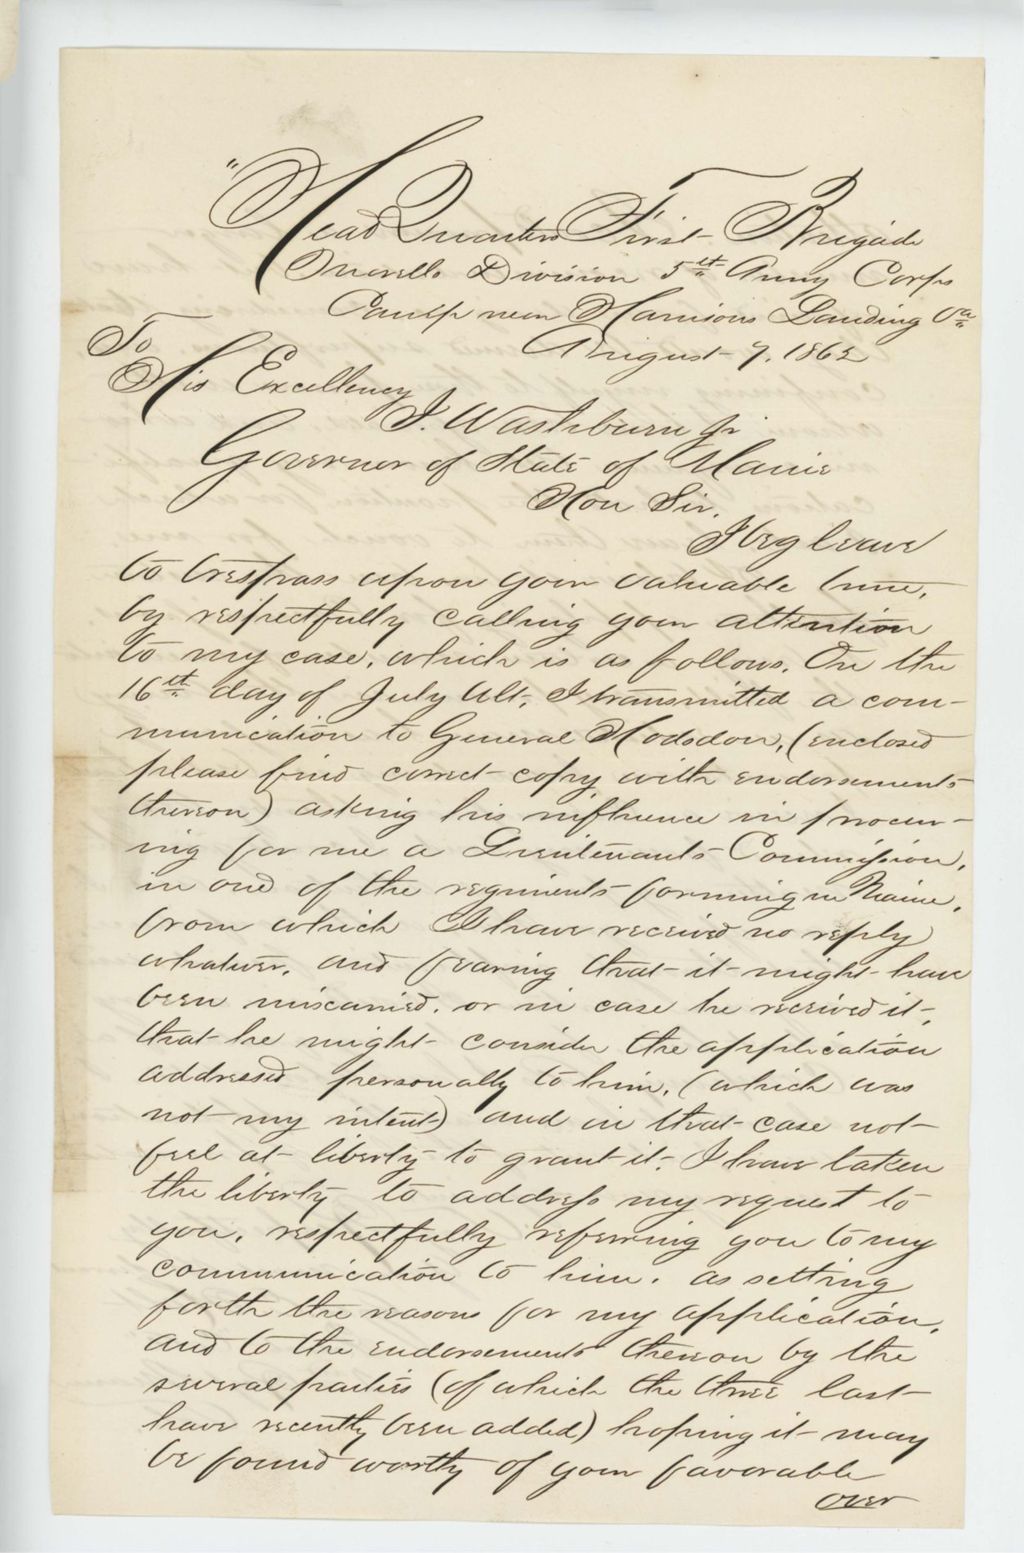 "Head Quarters First Brigade
Morells Division 5th Army Corps
Camp near Harrisons Landing Va
August 7. 1862
To
His Excellency
I. Washburn Jr
Governor of State of Maine
Hon Sir.
I beg leave
to trespass upon your valuable time,
by respectfully calling your attention
to my case, which is as follows. On the
16th day of July Ult, I transmitted a com-
munication to General Hodsdon, (enclosed
please find correct copy with endorsements
thereon) asking his influence in procur-
ing for me a Lieutenants Commission,
in one of the regiments forming in Maine,
from which I have received no reply
whatever, and fearing that it might have
been miscarried. or in case he received it,
that he might consider the application
addressed personally to him, (which was
not my intent) and in that case not
feel at liberty to grant it, I have taken
the liberty to address my request to
you, respectfully referring you to my
communication to him. as setting
forth the reasons for my application,
and to the endorsements thereon by the
several parties (of which the three last
have recently been added) hoping it may
be found worthy of your favorable
over